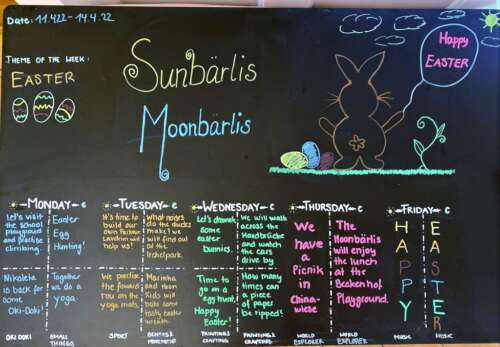 Date: 11.422 - 14.4.22
THEME OF THE WEEK:
EASTER
Sunbärlis
Moonbärlis
Happy
EASTER
MONDAY
Let's visit
the school
playground
and practise
climbing.
Easter
Egg
Hunting!
Nikoleta
is back for
some
Oki-Doki!
Together
we do a
yoga
OKI DOKI
SMALL
THINGS
TUESDAY
It's time to
build our
own
help us!
What noises
do the ducks
make? We
will find out
at the
Irchelpark.
We practise
the forward
roll on the
yoga mats.
Marinha
and Moon
Kids will
bake some
tasty easter
SPORT
WEDNESDAY
Let's
some
easter
bunnies.
We will walk
across the
Hardbrücke
and watch
the cars
drive by
Time to
go on a
egg hunt
Happy
Easter!
How many
times can
a piece of
paper
be ripped?
PAINTING &
CRAFTING
PAINTING &
CRAFTING
THURSDAY
We
have
a
Picnik
in
China-
wiese
The
Moonbärlis
will enjoy
the lunch
at the
Beckenhof
Playground.
WORLD
EXPLORER
WORLD
EXPLORER
FRIDAY
HAPPY
EASTER
MUSIC
MUSIC